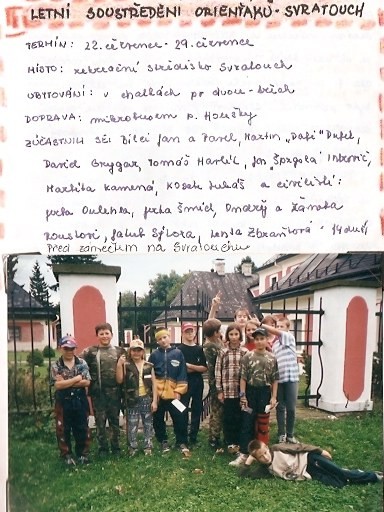 LETNÍ SOUSTŘEDĚNÍ ORIENŤÁKŮ - SVRATOUCH
TERMÍN: 22. července - 29. července
MÍSTO: rekreační středisko Svratouch
UBYTOVÁNÍ: v chatkách po dvou-třech
DOPRAVA: mikrobusem p. Horišky
ZÚČASTNILI SE: Bílci Jan a Pavel, Martin „Dafi" Dufek,
David Gryggar, Tomáš Harlík, Jan „Špageta"
Markéta Kamená, Kosek Lukáš a civilisti:
Jirka Ouleha, Jirka Šmíd, Ondřej a Žaneta
Jakub Sýkora, Lenka - 14 duší
Před zámečkem na Svratouchu